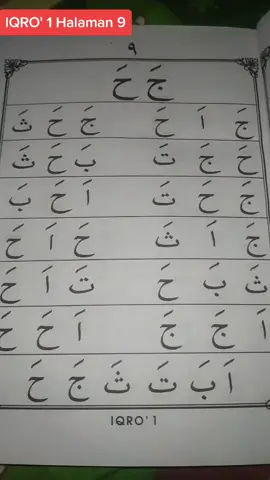 IQRO' 1 Halaman 9
٩
جَ حَ
جَ اَ حَ جَ حَ ثَ
حَ جَ تَ بَ حَ ثَ
جَ حَ تَ اَ حَ بَ
جَ اَ ثَ حَ اَ حَ
ثَ بَ حَ تَ اَ حَ
اَ جَ جَ اَ حَ حَ
اَ بَ تَ ثَ جَ حَ
IQRO' 1